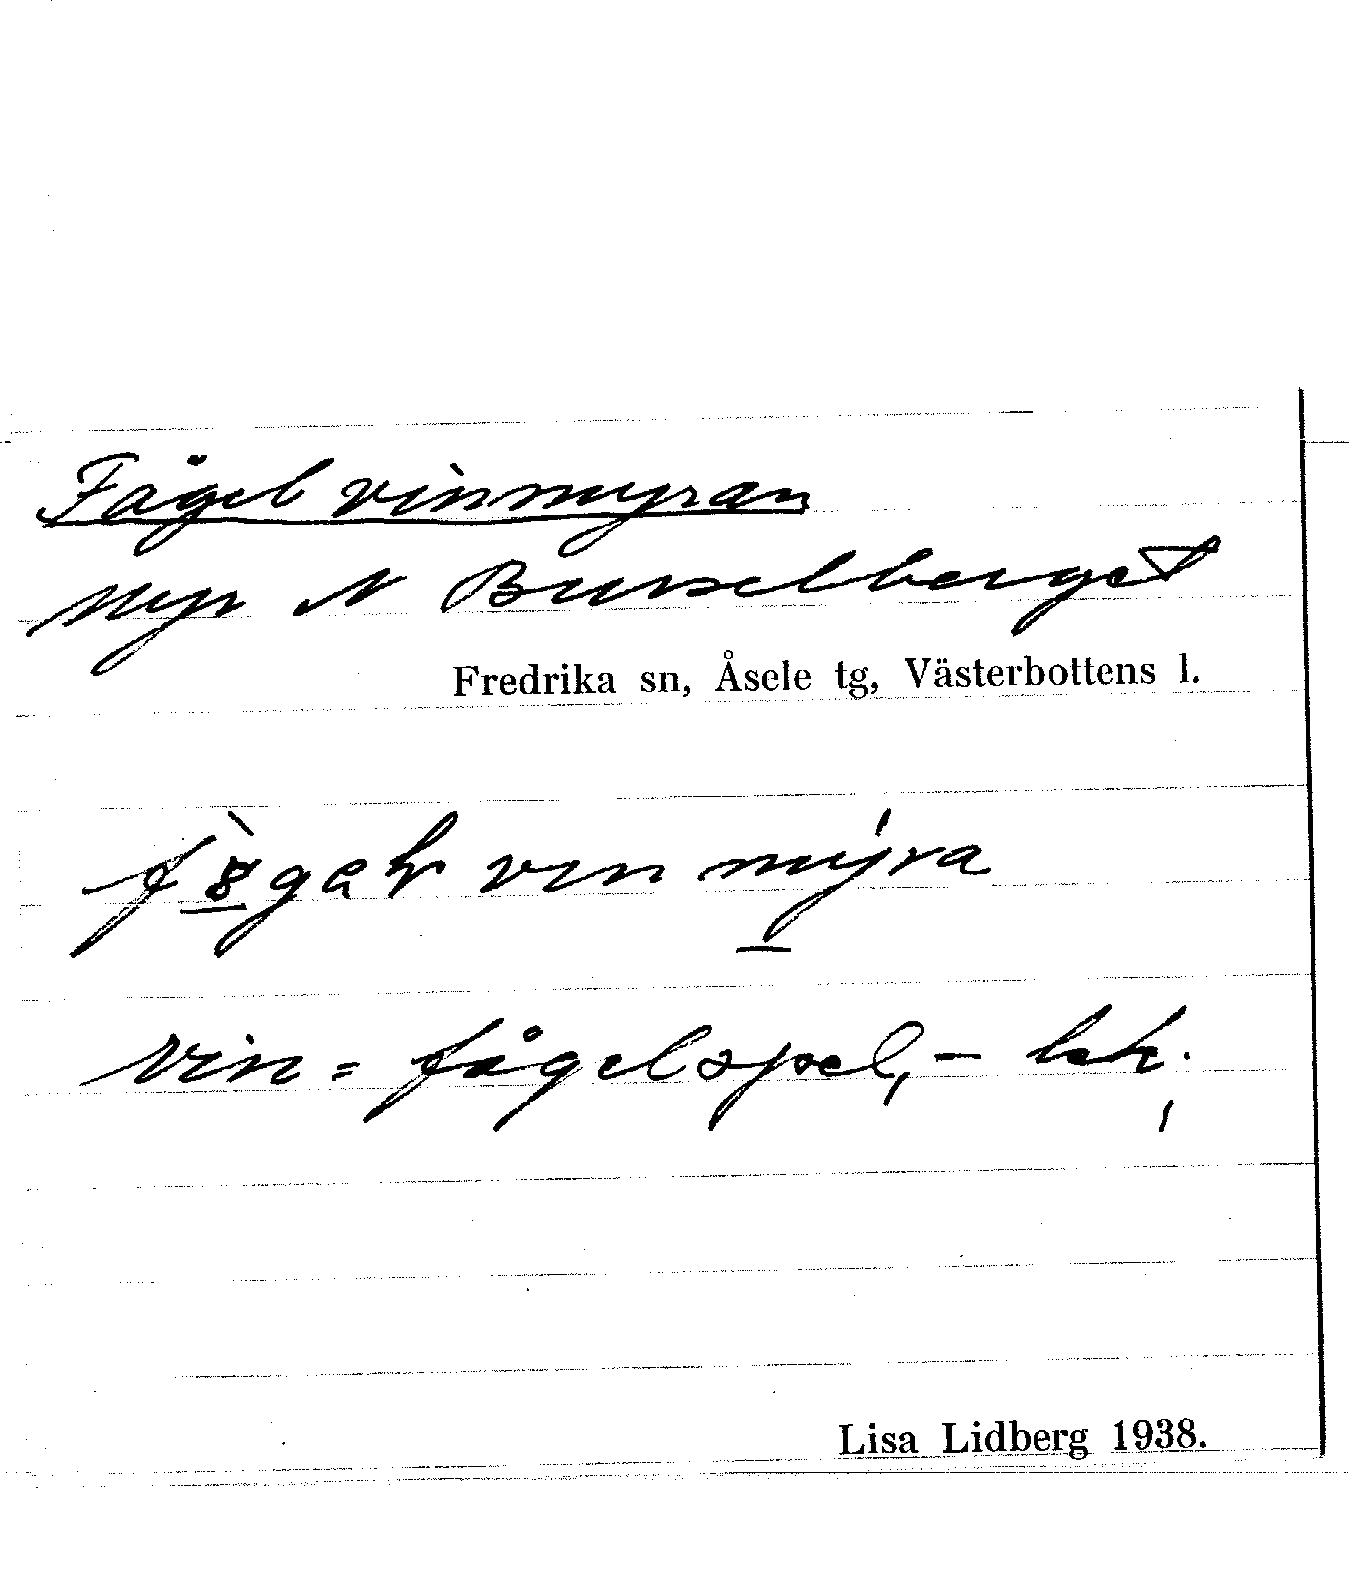 Fågelvinmyran
myr N Burselberget
Fredrika sn, Åsele tg, Västerbottens l.
vin myra
vin = fågelspel, - lek.
Lisa Lidberg 1938.